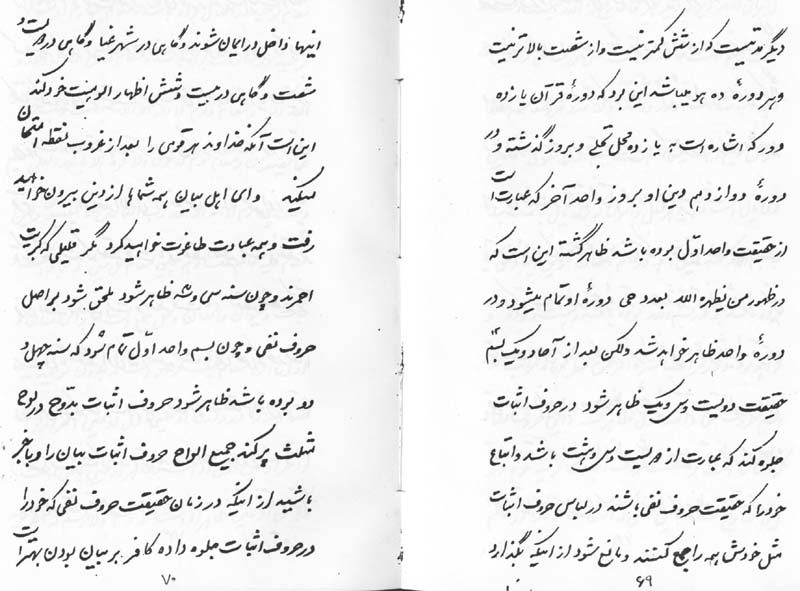 دیگر مدتیست که از شش کمتر نیست و از شصت بالاتر نیست
و هر دورهٔ ده هو میباشد این بود که دورهٔ قرآن یازده
دور که اشاره است به یازده محل تجلی و بروز گذشته و در
دورهٔ دوازدهم دین او بروز واحد آخر که عبارت است
از حقیقت واحد اوّل بوده باشد ظاهر گشته این است که
در ظهور من یظهره الله بعدد حی دورهٔ او تمام میشود و در
دورهٔ واحد ظاهر خواهد شد ولکن بعد از آحاد و یک بسم
حقیقت دویست و سی و یک ظاهر شود در حروف اثبات
جلوه کند که عبارت از دویست و سی و هشت باشد و اتباع
خود را که حقیقت حروف نفی باشند در لباس حروف اثبات
مثل خودش همه را جمع کنند و مانع شود از اینکه بگذارد
۶۹
اینها داخل در ایمان شوند و گاهی در شهر غبا و گاهی در دویست و
شصت و گاهی در بیست و شش اظهار الوهیت خود کند
این است آنکه خداوند هر قومی را بعد از غروب نقطه امتحان
میکند وای اهل بیان همه شماها از دین بیرون خواهید
رفت و همه عبادت طاغوت خواهید کرد مگر قلیلی که کبریت
احمرند و چون سنه سی و شه ظاهر شود ملحق شود بر اصل
حروف نفی و چون بسم واحد اوّل تمام شود که سنه چهل و
دو بوده باشد ظاهر شود حروف اثبات بدّوح در لوح
مثلث پر کند جمیع الواح حروف اثبات بیان را و باخبر
باشید از اینکه در زمان حقیقت حروف نفی که خود را
در حروف اثبات جلوه داده کافر بر بیان بودن بهتر است
۷۰